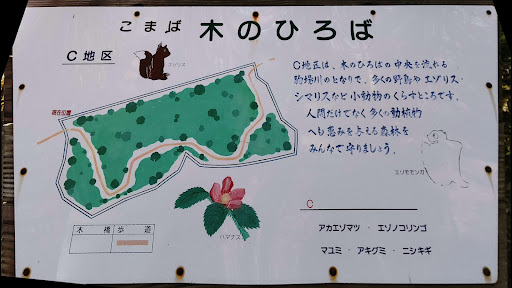 こまば 木のひろば
C地区
エゾリス
C地区は、木のひろばの中央を流れる
駒場川のとなりで、多くの野鳥やエゾリス・
シマリスなど小動物のくらすところです。
人間だけでなく多くの動植物
へも恵みを与える森林を
みんなで守りましょう。
現在位置
エゾモモンガ
ハマナス
木橋 歩道
C
アカエゾマツ・エゾノコリンゴ
マユミ・アキグミ・ニシキギ